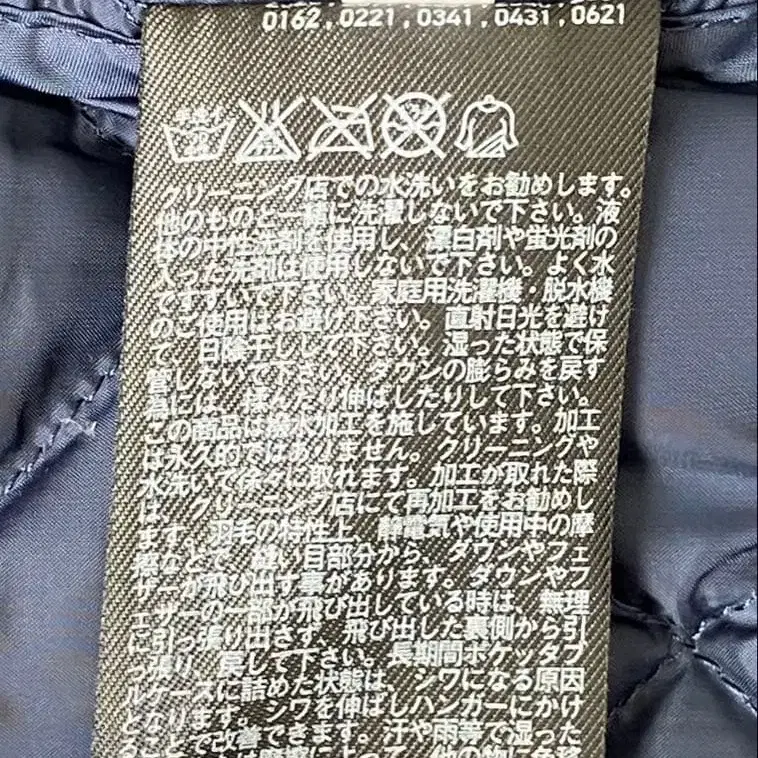 0162,0221,0341,0431,0621
手洗イ
30
クリーニング店での水洗いをお勧めします。
他のものと一緒に洗濯しないで下さい。液
体の中性洗剤を使用し、漂白剤や蛍光剤の
入った洗剤は使用しないで下さい。よく水
ですすいで下さい。家庭用洗濯機・脱水機
のご使用はお避け下さい。直射日光を避け
て、日陰干しして下さい。湿った状態で保
管しないで下さい。ダウンの膨らみを戻す
為には、揉んだり伸ばしたりして下さい。
この商品は撥水加工を施しています。加工
は永久的ではありません。クリーニングや
水洗いで徐々に取れます。加工が取れた際
は、クリーニング店にて再加工をお勧めし
ます。羽毛の特性上、静電気や使用中の摩
擦などで、縫い目部分から、ダウンやフェ
ザーが飛び出す事があります。ダウンやフ
ェザーの一部が飛び出している時は、無理
に引っ張り出さず、飛び出した裏側から引
っ張り、戻して下さい。長期間ポケッタブ
ルケースに詰めた状態は、シワになる原因
となります。シワを伸ばしハンガーにかけ
ることで改善できます。汗や雨等で湿った